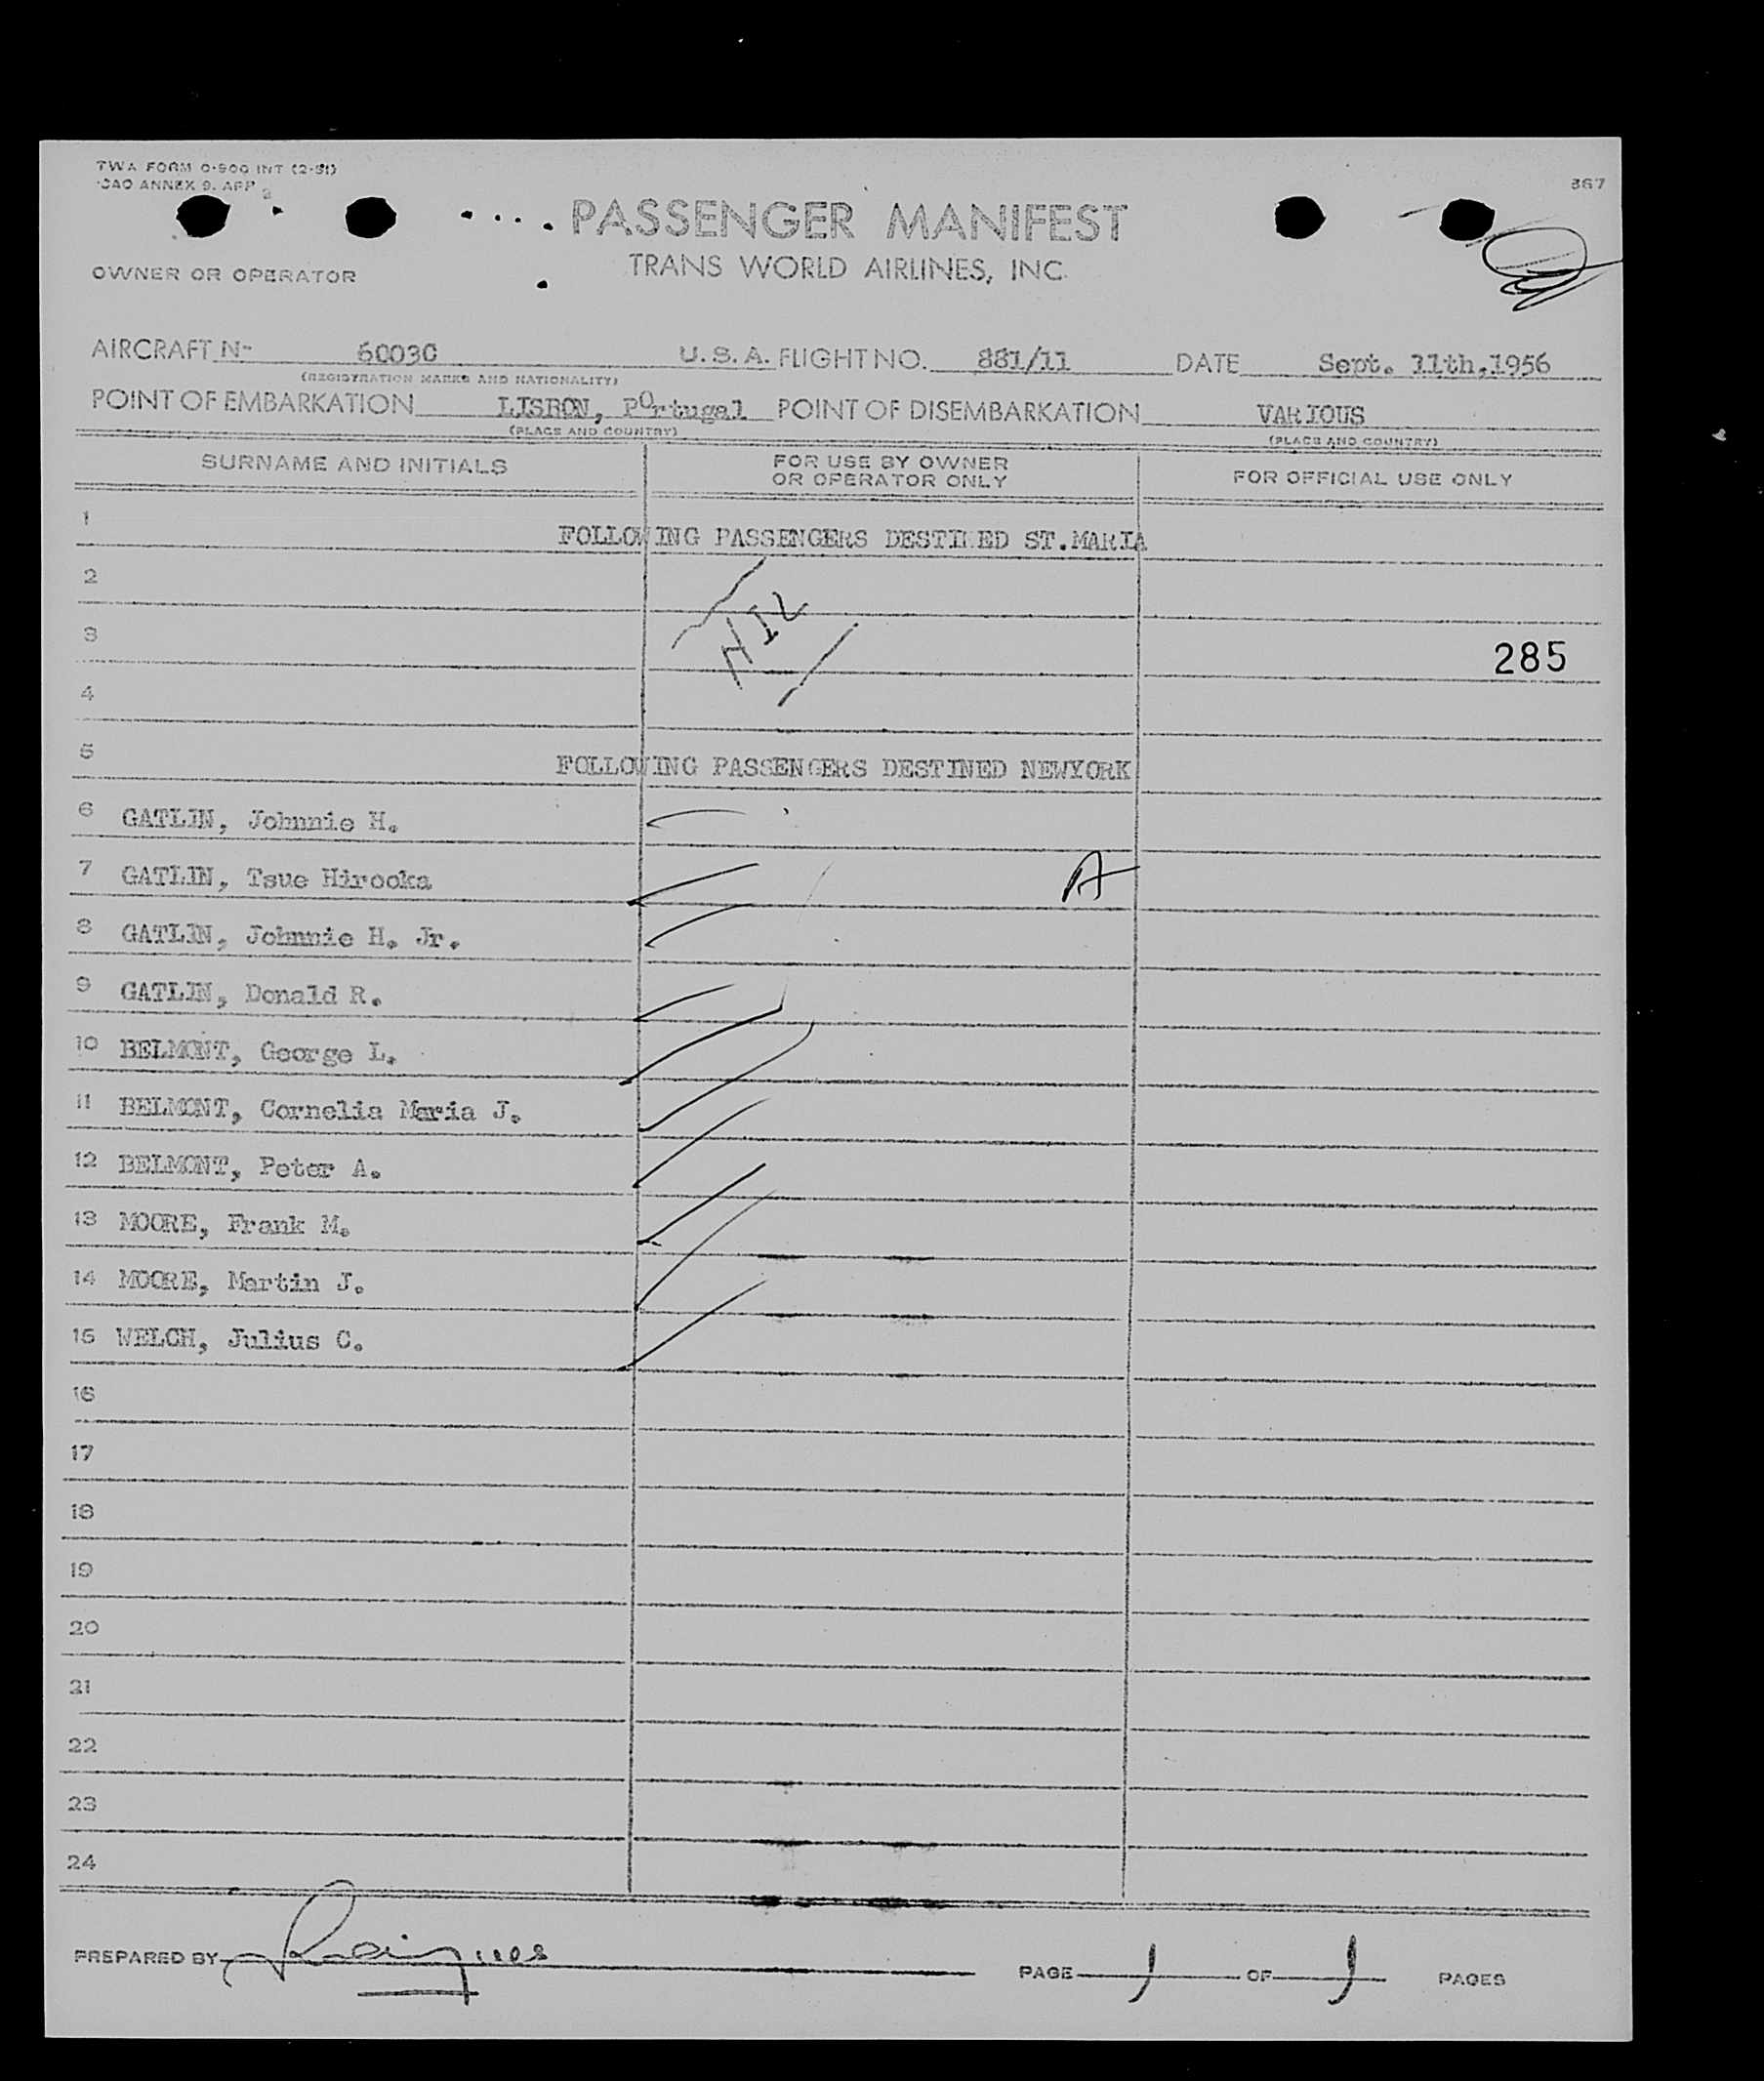 TWA FORM O-900 INT (2-51)
ICAO ANNEX 9. APP 3
367
PASSENGER MANIFEST
OWNER OR OPERATOR
TRANS WORLD AIRLINES, INC.
AIRCRAFT N- 6003C U.S.A. FLIGHT NO. 881/11 DATE Sept. 11th,1956
(REGISTRATION MARKS AND NATIONALITY)
POINT OF EMBARKATION LISBON, POrtugal POINT OF DISEMBARKATION VARIOUS
(PLACE AND COUNTRY) (PLACE AND COUNTRY)
SURNAME AND INITIALS FOR USE BY OWNER OR OPERATOR ONLY FOR OFFICIAL USE ONLY
1 FOLLOWING PASSENGERS DESTINED ST.MARIA
2
NIL
3 285
4
5 FOLLOWING PASSENGERS DESTINED NEWYORK
6 GATLIN, Johnnie H.
7 GATLIN, Tsue Hirooka A
8 GATLIN, Johnnie H. Jr.
9 GATLIN, Donald R.
10 BELMONT, George L.
11 BELMONT, Cornelia Maria J.
12 BELMONT, Peter A.
13 MOORE, Frank M.
14 MOORE, Martin J.
15 WELCH, Julius C.
16
17
18
19
20
21
22
23
24
PREPARED BY PAGE 1 OF 1 PAGES